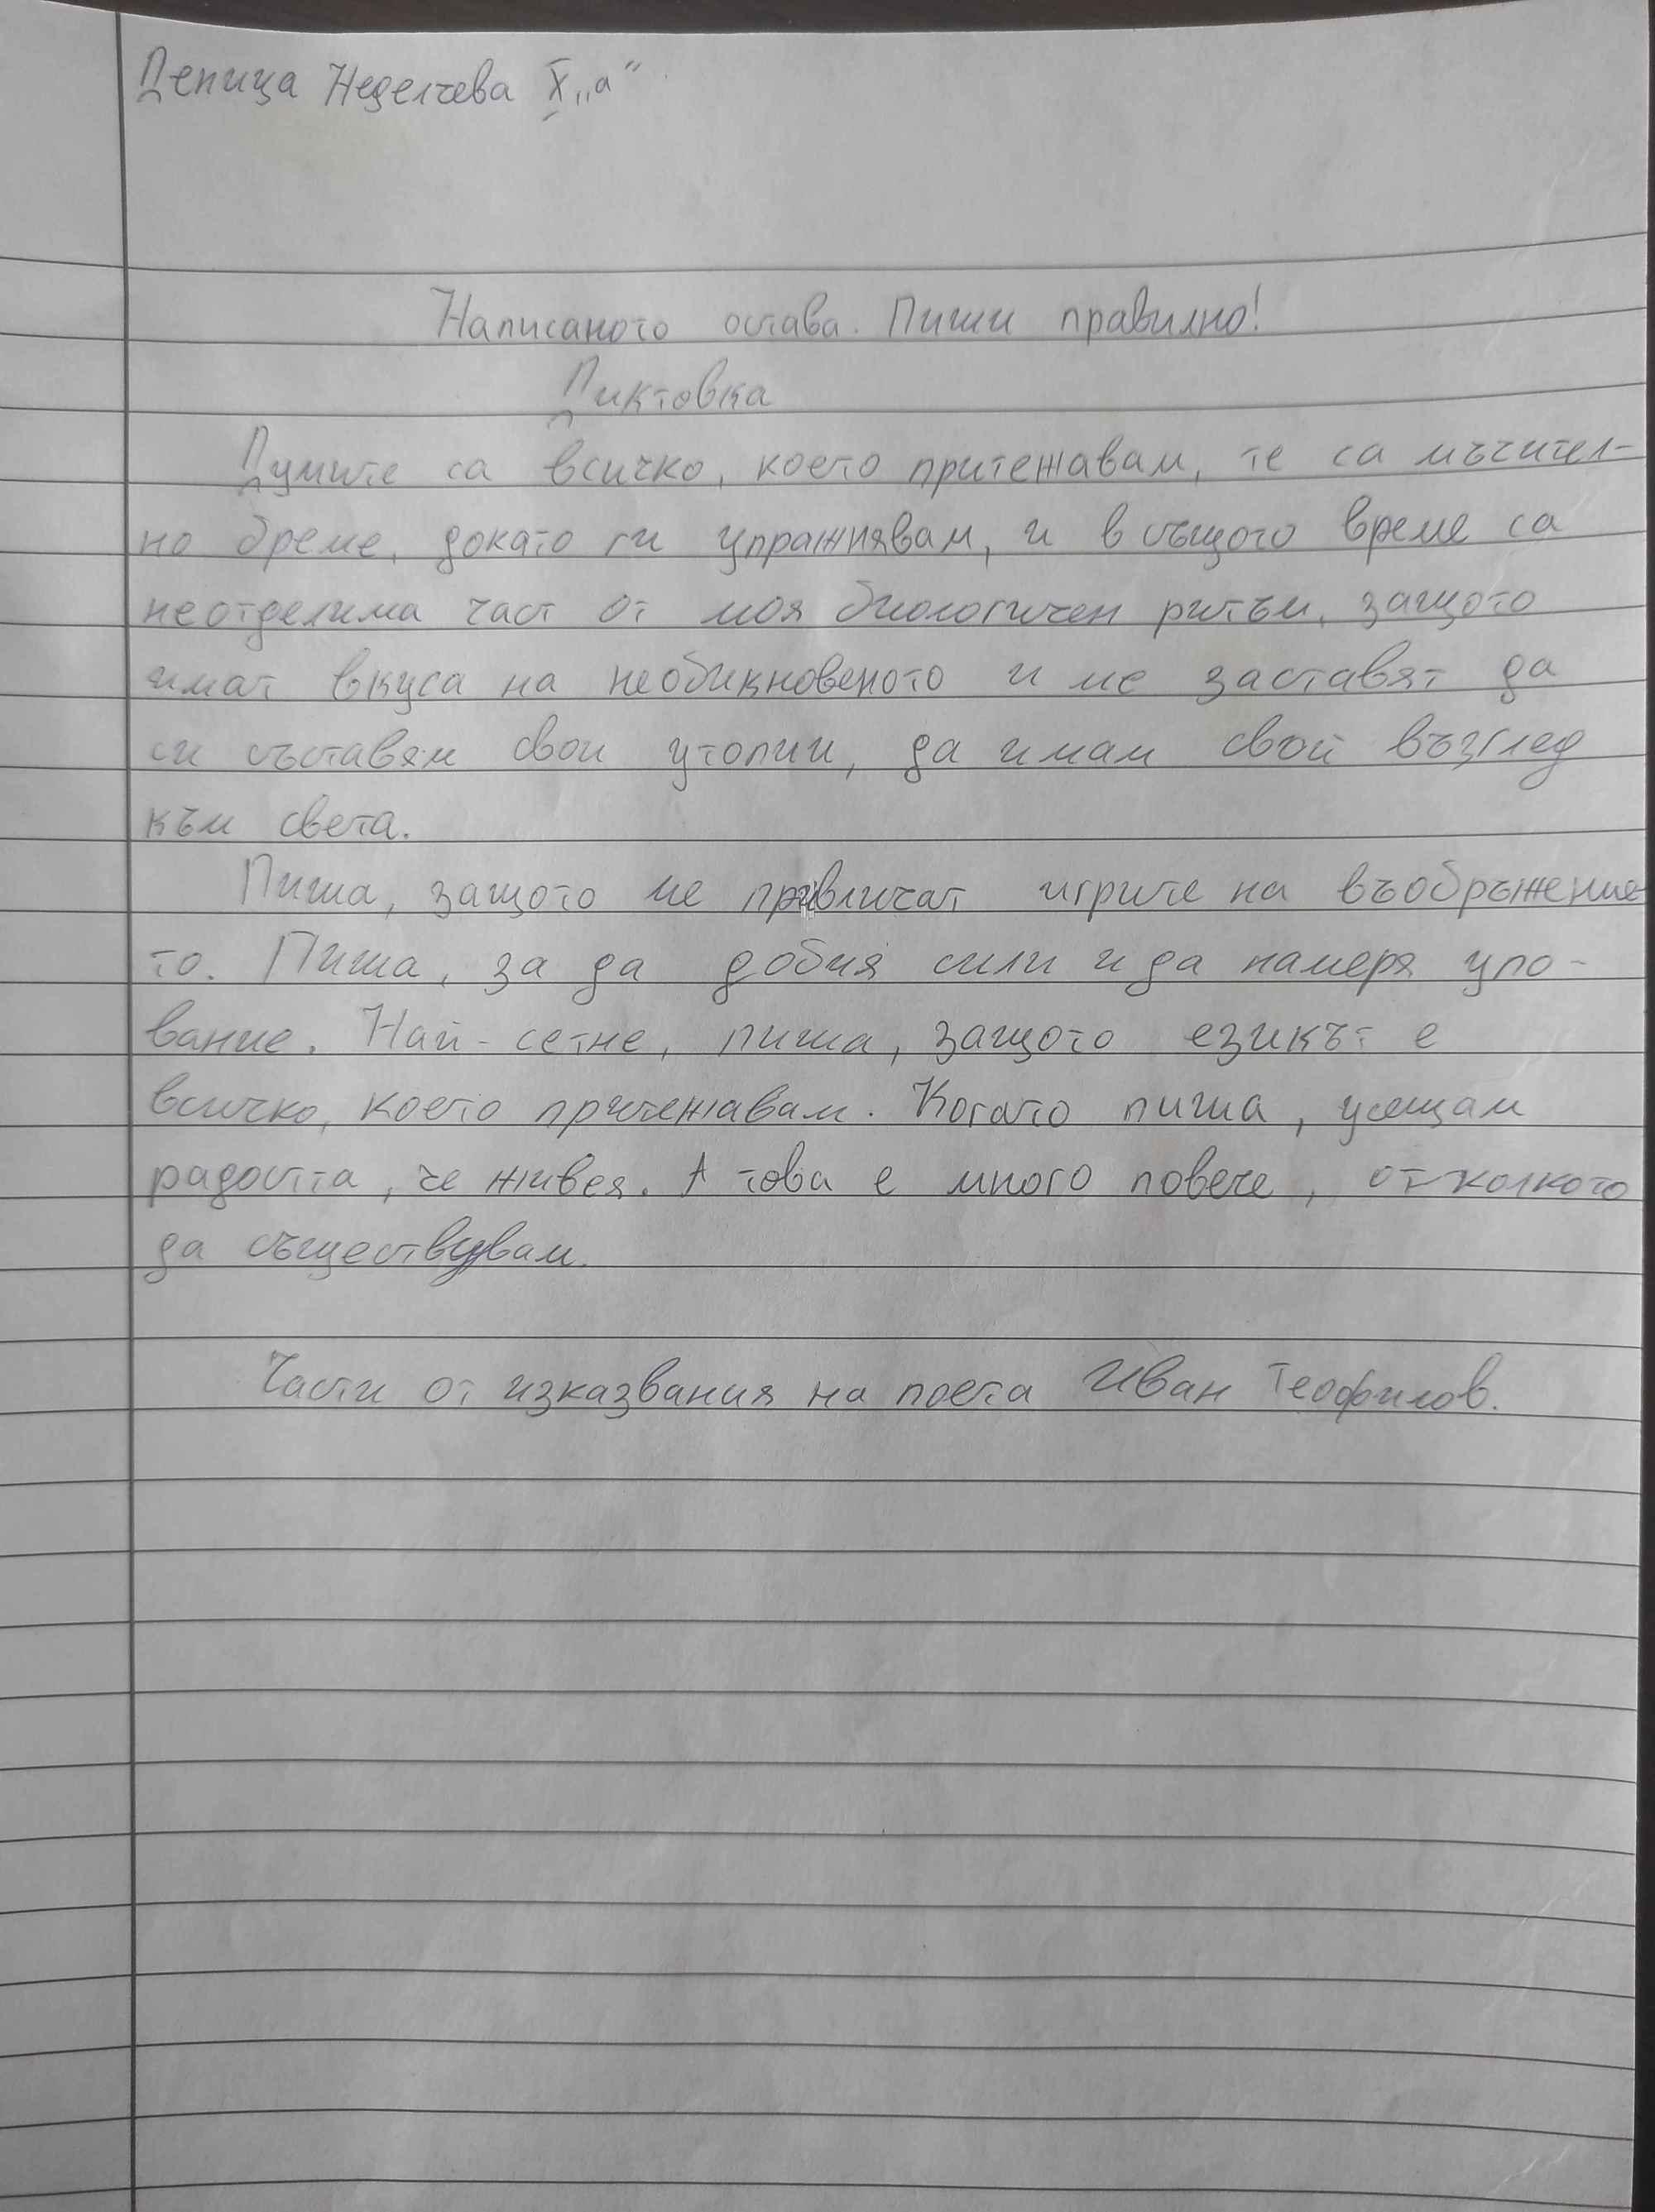 Деница Неделчева X „а"
Написаното остава. Пиши правилно!
Диктовка
Думите са всичко, което притежавам, те са мъчител-
но бреме, докато ги упражнявам, и в същото време са
неотделима част от моя биологичен ритъм, защото
имат вкуса на необикновеното и ме заставят да
си съставям свои утопии, да имам свой възглед
към света.
Пиша, защото ме привличат игрите на въображение-
то. Пиша, за да добия сили и да намеря упо-
вание. Най-сетне, пиша, защото езикът е
всичко, което притежавам. Когато пиша, усещам
радостта, че живея. А това е много повече, отколкото
да съществувам.
Части от изказвания на поета Иван Теофилов.